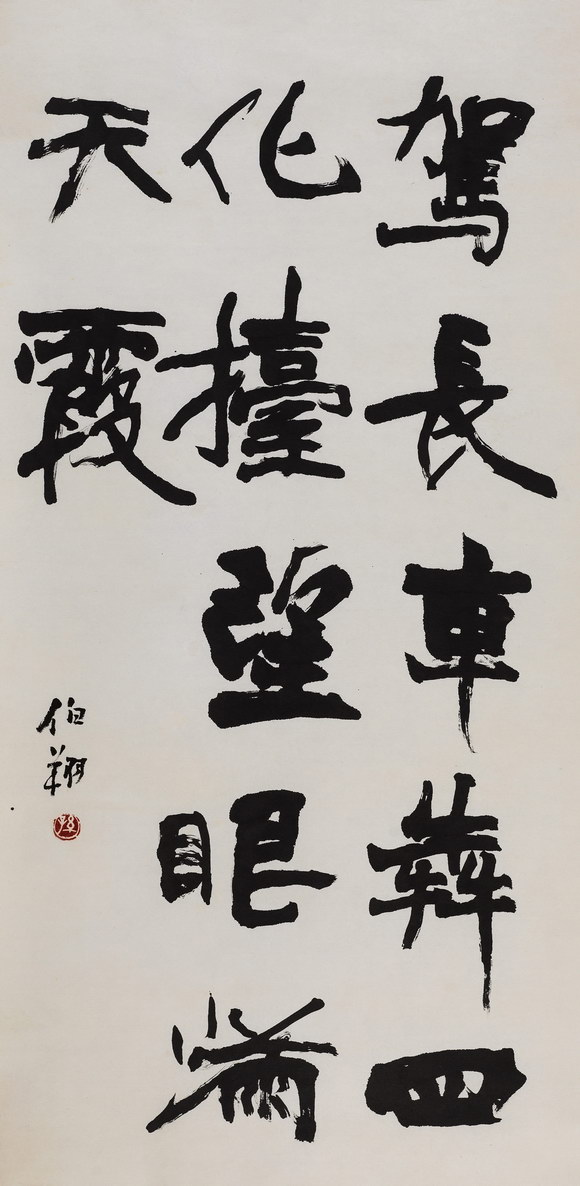 駕長車犇四
化擡望眼滿
天霞
伯翔